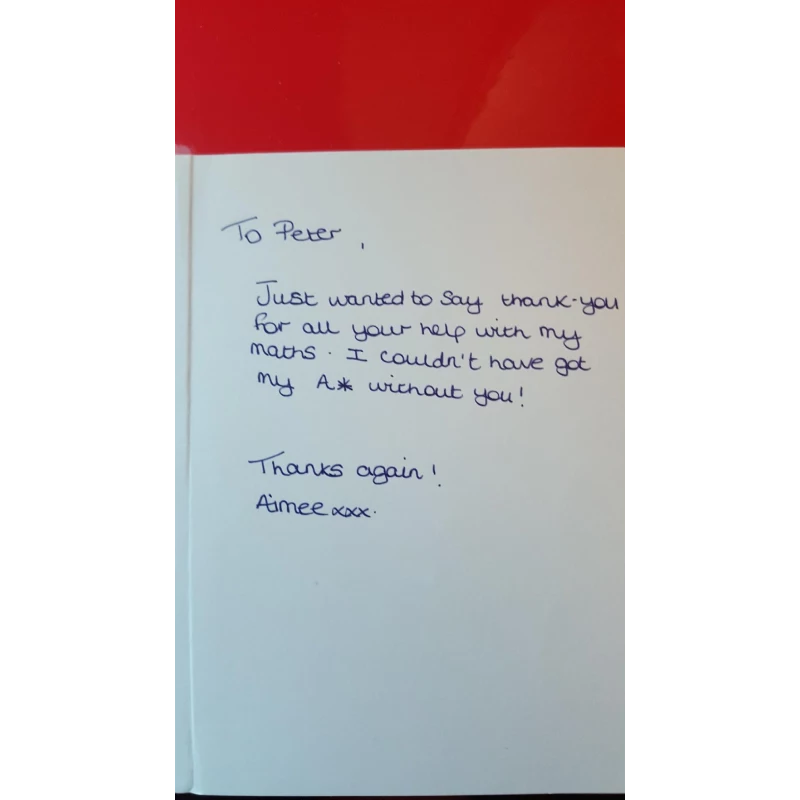 To Peter,
Just wanted to say thank-you
for all your help with my
maths. I couldn't have got
my A* without you!
Thanks again!
Aimee xxx.